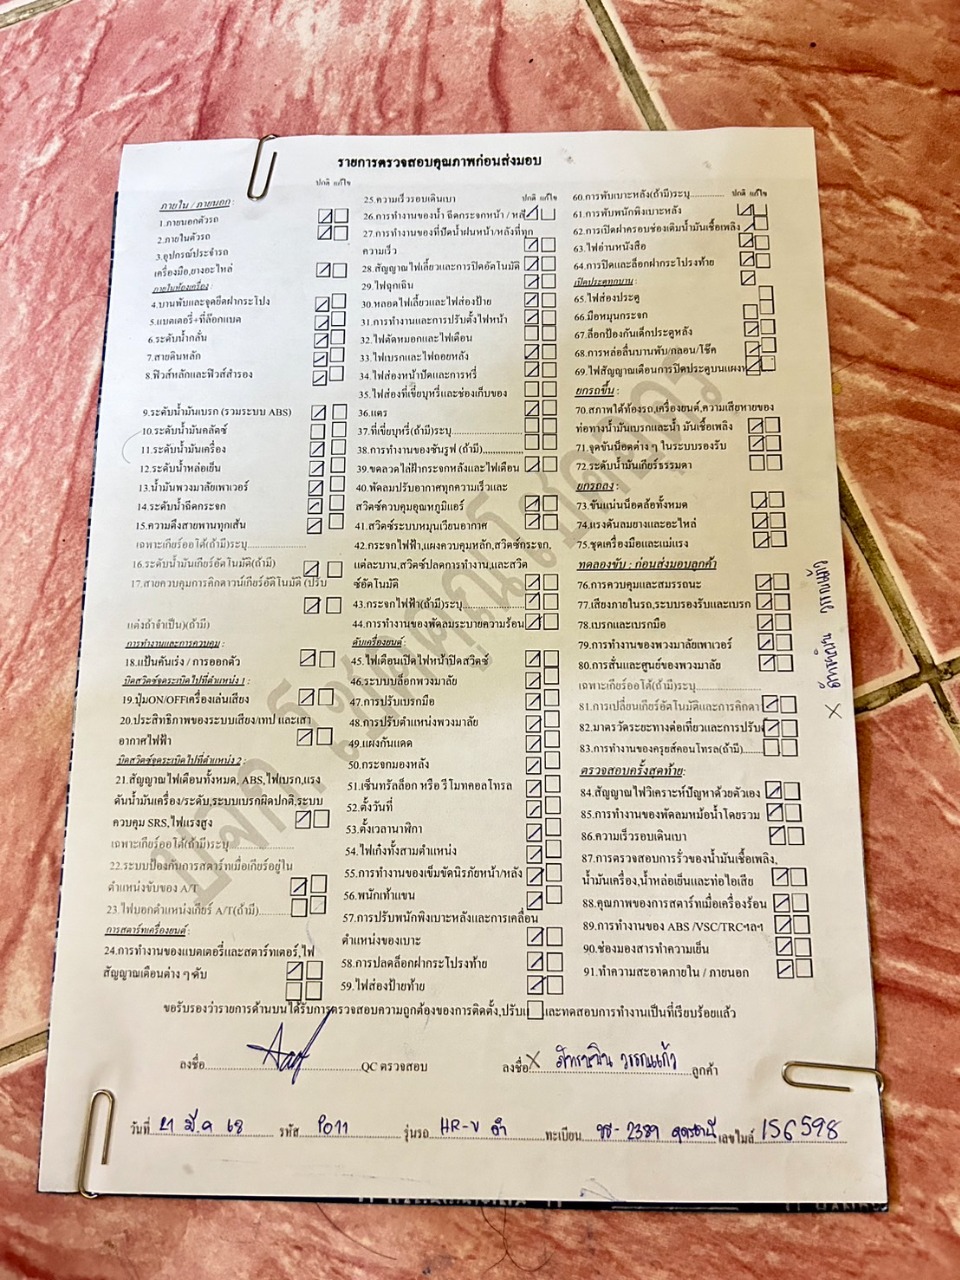 รายการตรวจสอบคุณภาพก่อนส่งมอบ
ปกติ แก้ไข
ภายใน / ภายนอก :
1.ภายนอกตัวรถ
2.ภายในตัวรถ
3.อุปกรณ์ประจำรถ
เครื่องมือ,ยางอะไหล่
ภายในห้องเครื่อง :
4.บานพับและจุดยึดฝากระโปรง
5.แบตเตอรี่+ที่ล๊อกแบต
6.ระดับน้ำกลั่น
7.สายดินหลัก
8.ฟิวส์หลักและฟิวส์สำรอง
9.ระดับน้ำมันเบรก (รวมระบบ ABS)
10.ระดับน้ำมันคลัตช์
11.ระดับน้ำมันเครื่อง
12.ระดับน้ำหล่อเย็น
13.น้ำมันพวงมาลัยเพาเวอร์
14.ระดับน้ำฉีดกระจก
15.ความตึงสายพานทุกเส้น
เฉพาะเกียร์ออโต้(ถ้ามี)ระบุ
16.ระดับน้ำมันเกียร์อัตโนมัติ(ถ้ามี)
17.สายควบคุมการคิกดาวน์เกียร์อัตโนมัติ (ปรับ
แต่งถ้าจำเป็น)(ถ้ามี)
การทำงานและการควบคุม :
18.แป้นคันเร่ง / การออกตัว
บิดสวิตซ์จุดระเบิดไปที่ตำแหน่ง 1 :
19.ปุ่มON/OFFเครื่องเล่นเสียง
20.ประสิทธิภาพของระบบเสียง/เทป และเสา
อากาศไฟฟ้า
บิดสวิตซ์จุดระเบิดไปที่ตำแหน่ง 2 :
21.สัญญาณไฟเตือนทั้งหมด, ABS,ไฟเบรก,แรง
ดันน้ำมันเครื่อง/ระดับ,ระบบเบรกผิดปกติ,ระบบ
ควบคุม SRS,ไฟแรงสูง
เฉพาะเกียร์ออโต้(ถ้ามี)ระบุ
22.ระบบป้องกันการสตาร์ทเมื่อเกียร์อยู่ใน
ตำแหน่งขับของ A/T
23.ไฟบอกตำแหน่งเกียร์ A/T(ถ้ามี)
การสตาร์ทเครื่องยนต์ :
24.การทำงานของแบตเตอรี่และสตาร์ทเตอร์,ไฟ
สัญญาณเตือนต่าง ๆ ดับ
25.ความเร็วรอบเดินเบา
ปกติ แก้ไข
26.การทำงานของน้ำ ฉีดกระจกหน้า /
27.การทำงานของที่ปัดน้ำฝนหน้า/หลังที่ทุก
ความเร็ว
28.สัญญาณไฟเลี้ยวและการปิดอัตโนมัติ
29.ไฟฉุกเฉิน
30.หลอดไฟเลี้ยวและไฟส่องป้าย
31.การทำงานและการปรับตั้งไฟหน้า
32.ไฟตัดหมอกและไฟเตือน
33.ไฟเบรกและไฟถอยหลัง
34.ไฟส่องหน้าปัดและการหรี่
35.ไฟส่องที่เขี่ยบุหรี่และช่องเก็บของ
36.แตร
37.ที่เขี่ยบุหรี่(ถ้ามี)ระบุ
38.การทำงานของซันรูฟ (ถ้ามี)
39.ขดลวดไล่ฝ้ากระจกหลังและไฟเตือน
40.พัดลมปรับอากาศทุกความเร็วและ
สวิตซ์ควบคุมอุณหภูมิแอร์
41.สวิตซ์ระบบหมุนเวียนอากาศ
42.กระจกไฟฟ้า,แผงควบคุมหลัก,สวิตซ์กระจก,
แต่ละบาน,สวิตซ์ปลดการทำงาน,และสวิต
ซ์อัตโนมัติ
43.กระจกไฟฟ้า(ถ้ามี)ระบุ
44.การทำงานของพัดลมระบายความร้อน
ดับเครื่องยนต์ :
45.ไฟเตือนเปิดไฟหน้าปิดสวิตซ์
46.ระบบบล็อกพวงมาลัย
47.การปรับเบรกมือ
48.การปรับตำแหน่งพวงมาลัย
49.แผงกันแดด
50.กระจกมองหลัง
51.เซ็นทรัลล็อก หรือ รีโมทคอลโทรล
52.ตั้งวันที่
53.ตั้งเวลานาฬิกา
54.ไฟเก๋งทั้งสามตำแหน่ง
55.การทำงานของเข็มขัดนิรภัยหน้า/หลัง
56.พนักเท้าแขน
57.การปรับพนักพิงเบาะหลังและการเคลื่อน
ตำแหน่งของเบาะ
58.การปลดล็อกฝากระโปรงท้าย
59.ไฟส่องป้ายท้าย
60.การพับเบาะหลัง(ถ้ามี)ระบุ
ปกติ แก้ไข
61.การพับพนักพิงเบาะหลัง
62.การเปิดฝาครอบช่องเติมน้ำมันเชื้อเพลิง
63.ไฟอ่านหนังสือ
64.การปิดและล็อกฝากระโปรงท้าย
เปิดประตูทุกบาน :
65.ไฟส่องประตู
66.มือหมุนกระจก
67.ล็อกป้องกันเด็กประตูหลัง
68.การหล่อลื่นบานพับ/กลอน/โช๊ค
69.ไฟสัญญาณเตือนการปิดประตูบนแผง
ยกรถขึ้น :
70.สภาพใต้ท้องรถ,เครื่องยนต์,ความเสียหายของ
ท่อทางน้ำมันเบรกและน้ำ มันเชื้อเพลิง
71.จุดขันน็อตต่าง ๆ ในระบบรองรับ
72.ระดับน้ำมันเกียร์ธรรมดา
ยกรถลง :
73.ขันแน่นน็อตล้อทั้งหมด
74.แรงดันลมยางและอะไหล่
75.ชุดเครื่องมือและแม่แรง
ทดลองขับ : ก่อนส่งมอบลูกค้า
76.การควบคุมและสมรรถนะ
77.เสียงภายในรถ,ระบบรองรับและเบรก
78.เบรกและเบรกมือ
79.การทำงานของพวงมาลัยเพาเวอร์
80.การสั่นและศูนย์ของพวงมาลัย
เฉพาะเกียร์ออโต้(ถ้ามี)ระบุ
81.การเปลี่ยนเกียร์อัตโนมัติและการคิกดา
82.มาตรวัดระยะทางต่อเที่ยวและการปรับ
83.การทำงานของครุยส์คอนโทรล(ถ้ามี)
ตรวจสอบครั้งสุดท้าย:
84.สัญญาณไฟวิเคราะห์ปัญหาด้วยตัวเอง
85.การทำงานของพัดลมหม้อน้ำโดยรวม
86.ความเร็วรอบเดินเบา
87.การตรวจสอบการรั่วของน้ำมันเชื้อเพลิง,
น้ำมันเครื่อง,น้ำหล่อเย็นและท่อไอเสีย
88.คุณภาพของการสตาร์ทเมื่อเครื่องร้อน
89.การทำงานของ ABS /VSC/TRCฯลฯ
90.ช่องมองสารทำความเย็น
91.ทำความสะอาดภายใน / ภายนอก
ขอรับรองว่ารายการด้านบนได้รับการตรวจสอบความถูกต้องของการติดตั้ง,ปรับ และทดสอบการทำงานเป็นที่เรียบร้อยแล้ว
ลงชื่อ QC ตรวจสอบ ลงชื่อ X วรรณแก้ว ลูกค้า
วันที่ 21 มี.ค 68 รหัส P011 รุ่นรถ HR-V ดำ ทะเบียน 2389 อุดรธานี เลขไมล์ 156598
X วรรณแก้ว